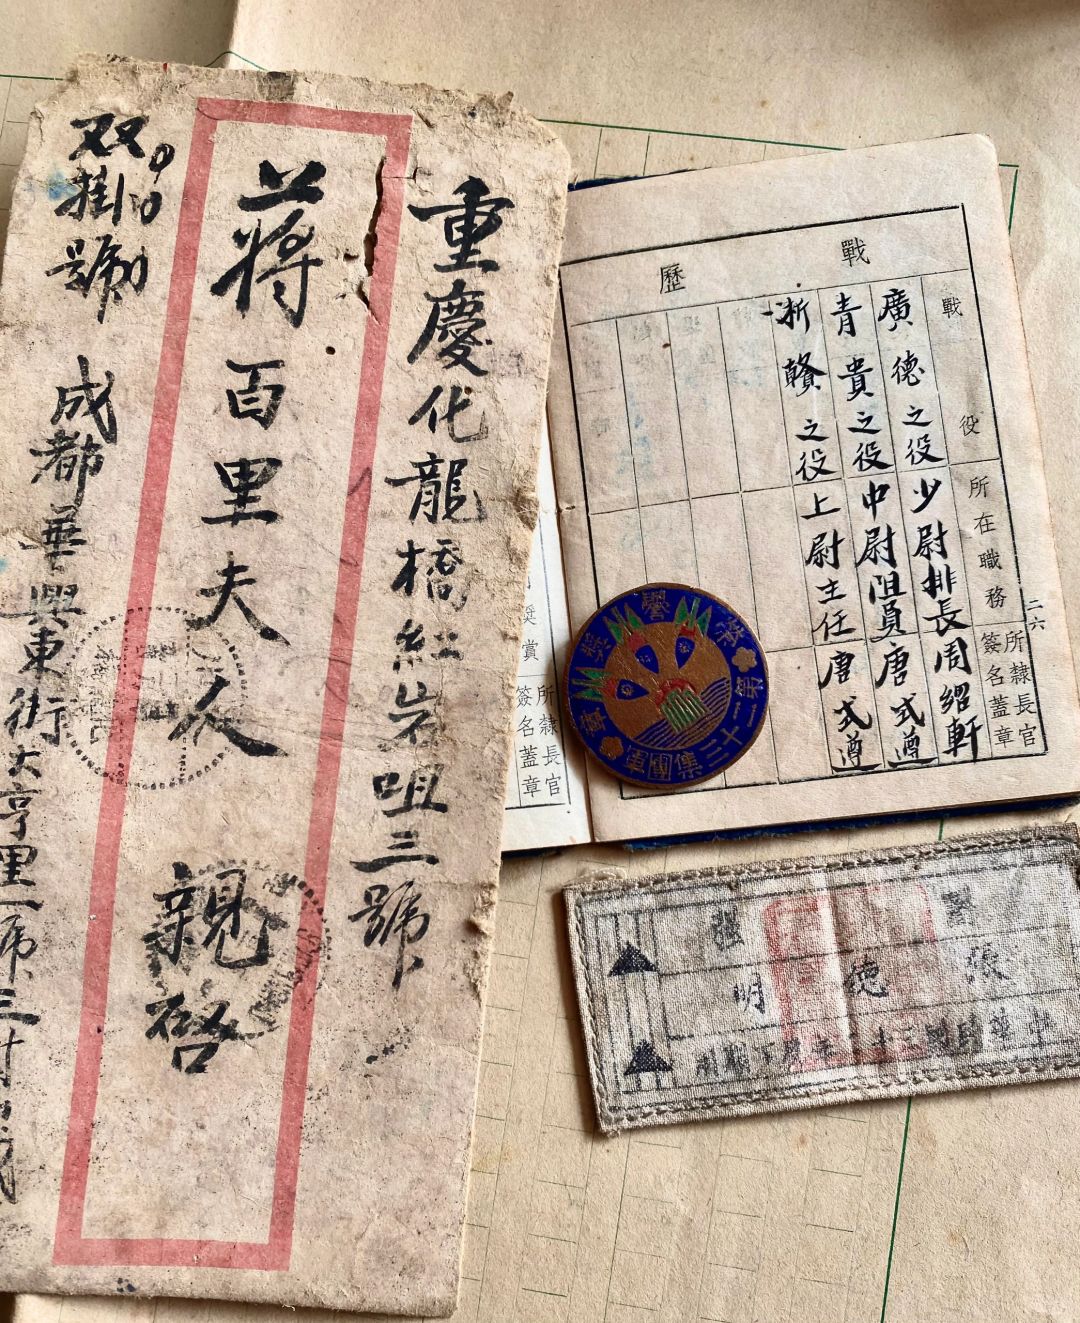 重慶化龍橋紅岩咀三號
蔣百里夫人 親啓
双掛號
成都華興東街大亨里一號三
戰歷
戰役 所在職務 所隸長官簽名蓋章
廣德之役 少尉排長 周紹軒
青貴之役 中尉阻員 唐式遵
浙贛之役 上尉主任 唐式遵
二六
獎賞
所隸長官簽名蓋章
第二十三集團軍
譽獎章
張德明